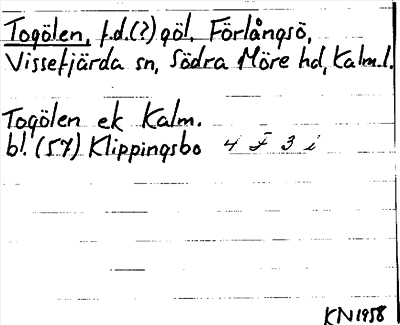 Togölen, f.d.(?) göl, Förlångsö,
Vissefjärda sn, Södra Möre hd, Kalm.l.
Togölen ek Kalm.
bl. (57) Klippingsbo 4 F 3 i
KN 1958